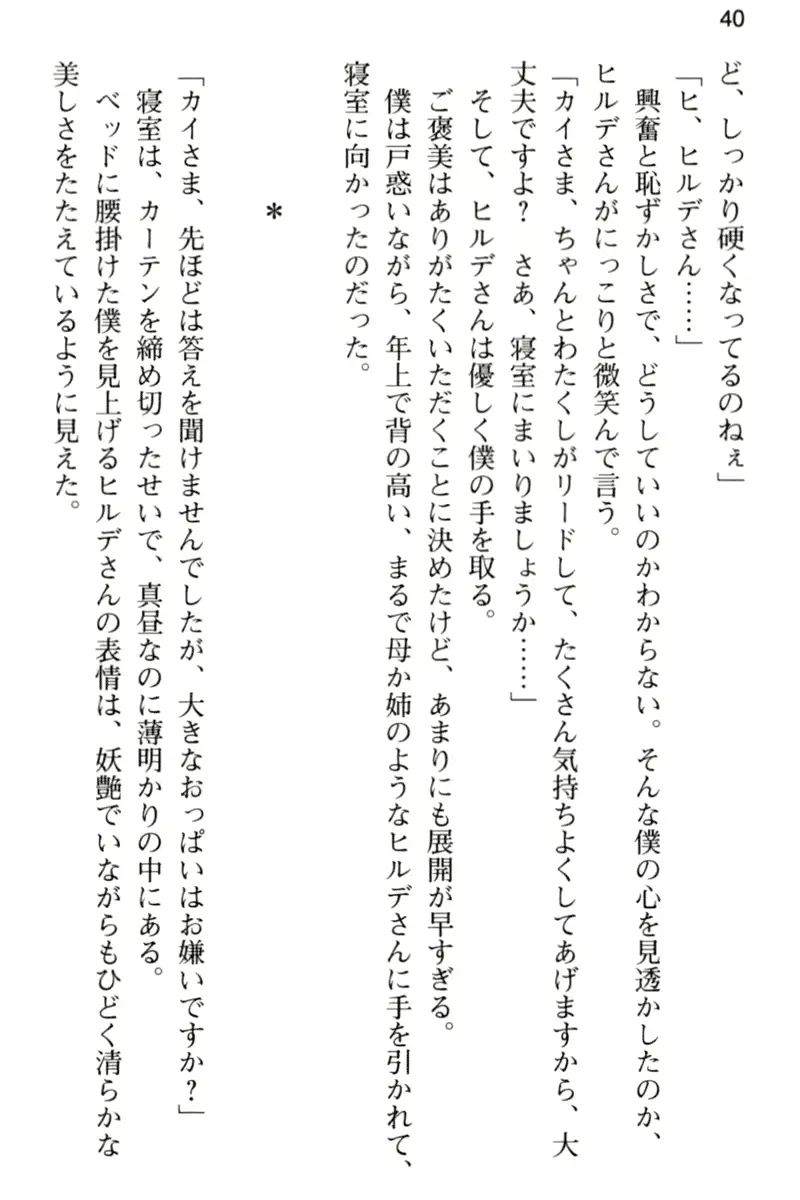 40
ど、しっかり硬くなってるのねぇ」
「ヒ、ヒルデさん……」
興奮と恥ずかしさで、どうしていいのかわからない。そんな僕の心を見透かしたのか、
ヒルデさんがにっこりと微笑んで言う。
「カイさま、ちゃんとわたくしがリードして、たくさん気持ちよくしてあげますから、大
丈夫ですよ？　さあ、寝室にまいりましょうか……」
そして、ヒルデさんは優しく僕の手を取る。
ご褒美はありがたくいただくことに決めたけど、あまりにも展開が早すぎる。
僕は戸惑いながら、年上で背の高い、まるで母か姉のようなヒルデさんに手を引かれて、
寝室に向かったのだった。
＊
「カイさま、先ほどは答えを聞けませんでしたが、大きなおっぱいはお嫌いですか？」
寝室は、カーテンを締め切ったせいで、真昼なのに薄明かりの中にある。
ベッドに腰掛けた僕を見上げるヒルデさんの表情は、妖艶でいながらもひどく清らかな
美しさをたたえているように見えた。